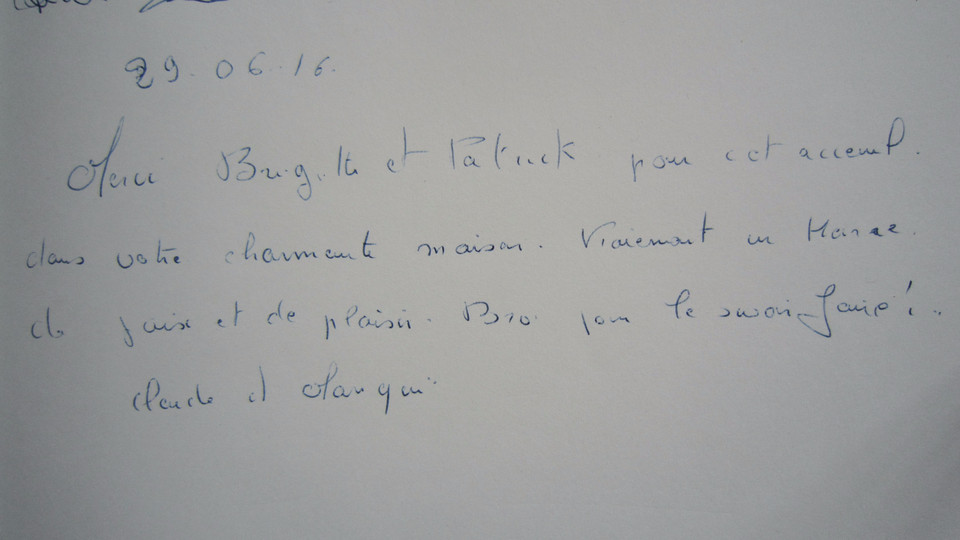 29.06.16.
Merci Brigitte et Patrick pour cet accueil.
dans votre charmante maison. Vraiment un Havre.
de paix et de plaisir. Bravo pour le savoir-faire !..
Claude et